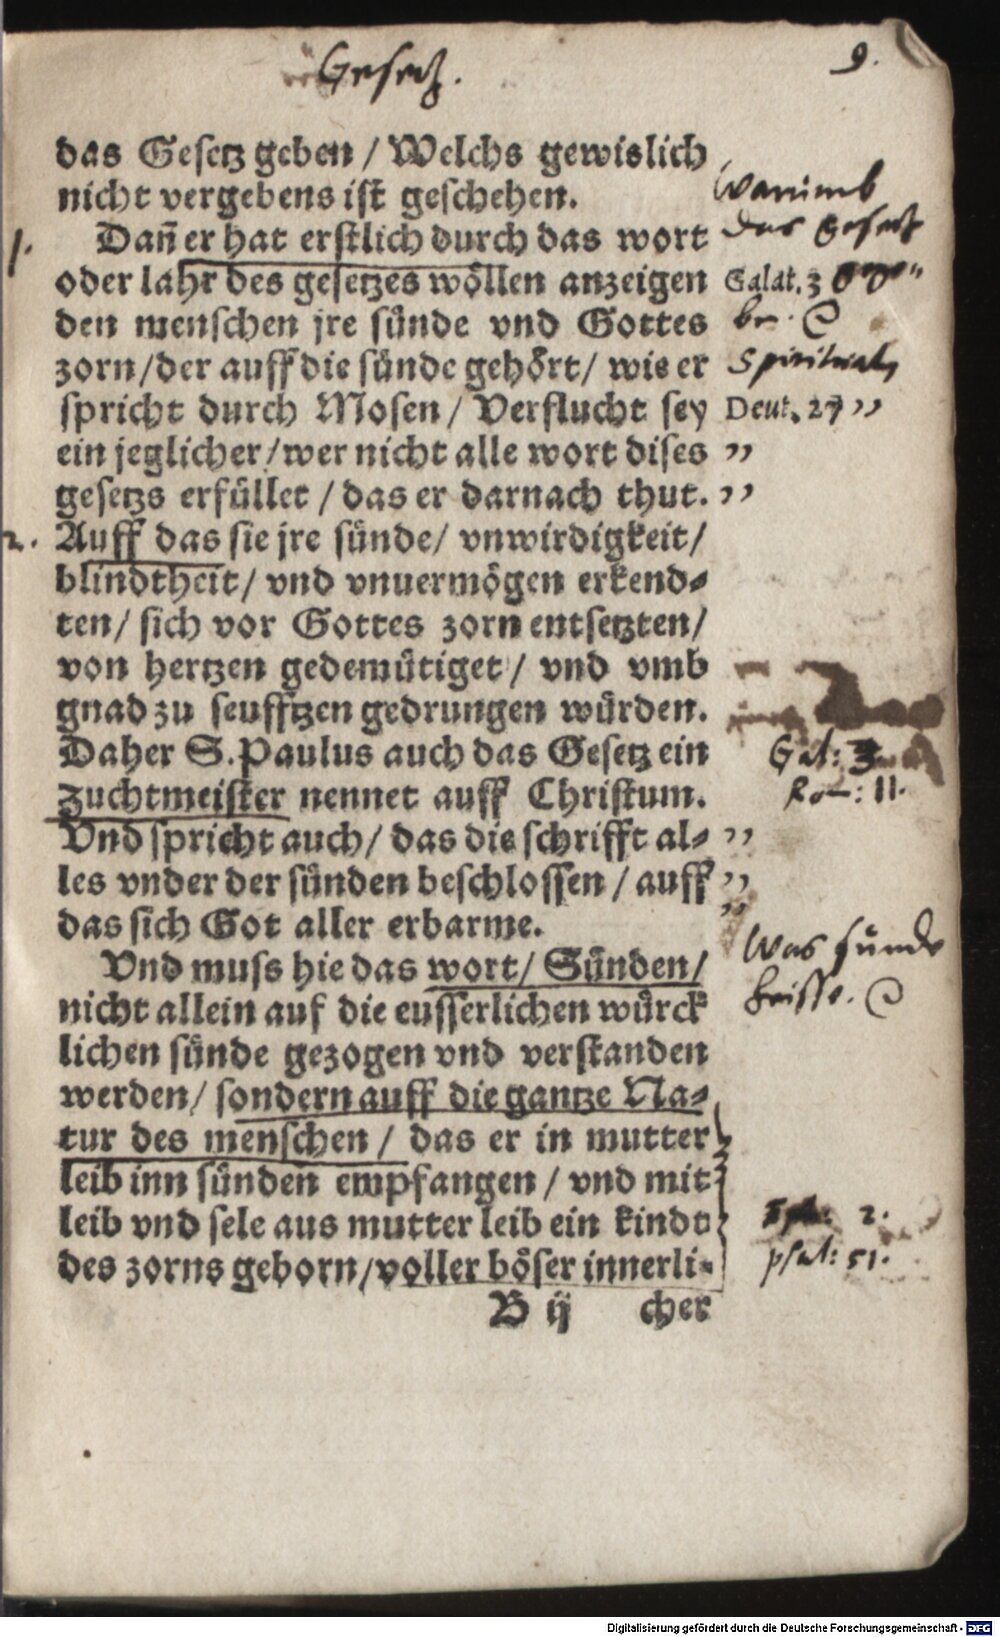 Gesetz. 9.
das Gesetz geben / Welchs gewislich
nicht vergebens ist geschehen.
Warumb
das Gesetz
1. Dañ er hat erstlich durch das wort
oder lahr des gesetzes wöllen anzeigen Galat. 3
den menschen jre sünde vnd Gottes
zorn / der auff die sünde gehört / wie er
spricht durch Mosen / Verflucht sey Deut. 27 ,,
ein jeglicher / wer nicht alle wort dises ,,
gesetzs erfüllet / das er darnach thut. ,,
2. Auff das sie jre sünde / vnwirdigkeit /
blindtheit / vnd vnuermögen erkend⸗
ten / sich vor Gottes zorn entsetzten /
von hertzen gedemütiget / vnd vmb
gnad zu seufftzen gedrungen würden.
Daher S. Paulus auch das Gesetz ein Gal: 3
Zuchtmeister nennet auff Christum. Rom: 11.
Vnd spricht auch / das die schrifft al⸗ ,,
les vnder der sünden beschlossen / auff ,,
das sich Got aller erbarme. ,,
Vnd muss hie das wort / Sünden / Was sünde
nicht allein auf die eusserlichen würck heisse.
lichen sünde gezogen vnd verstanden
werden / sondern auff die gantze Na⸗
tur des menschen / das er in mutter
leib inn sünden empfangen / vnd mit
leib vnd sele aus mutter leib ein kindt Eph: 2.
des zorns geborn / voller böser innerli⸗ psal: 51.
B ij cher
Digitalisierung gefördert durch die Deutsche Forschungsgemeinschaft - DFG